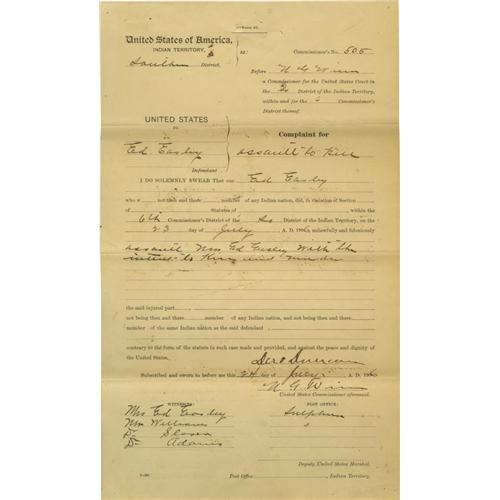 United States of America,
INDIAN TERRITORY, ss:
Southern District.
Commissioner's No. 505
Before N G Winn
a Commissioner for the United States Court in
the So District of the Indian Territory,
within and for the Commissioner's
District thereof.
UNITED STATES
vs.
Ed Easley
Defendant
Complaint for
assault to Kill
I DO SOLEMNLY SWEAR That one Ed Easley
who a not then and there member of any Indian nation, did, in violation of Section
of Statutes of within the
6th Commissioner's District of the So District of the Indian Territory, on the
23 day of July A. D. 190 unlawfully and feloniously
assault Mrs Ed Easley with the
intent to Kill and murder
the said injured part
not being then and there member of any Indian nation, and not being then and there
member of the same Indian nation as the said defendant
contrary to the form of the statute in such case made and provided, and against the peace and dignity of
the United States.
Subscribed and sworn to before me this 24 day of July A. D. 190
N. G. Winn
United States Commissioner aforesaid.
WITNESSES
POST OFFICE:
Mrs Ed Easley Sulphur
Mrs Williams
Dr Slover
Dr Adams
Deputy United States Marshal.
Post Office Indian Territory.